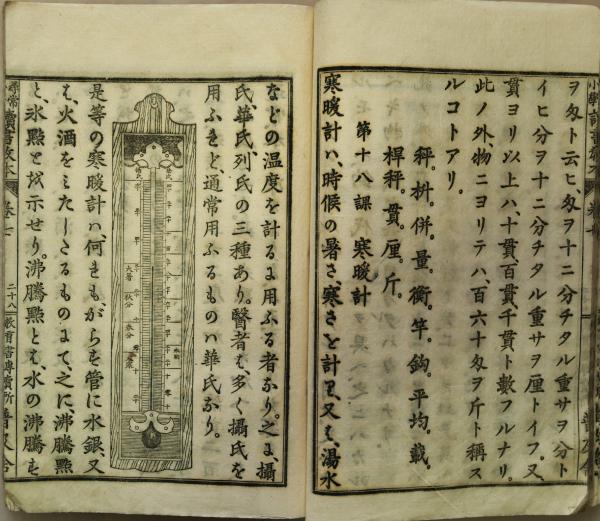 ヲ匁ト云ヒ、匁ヲ十二分チタル重サヲ分ト
イヒ分ヲ十二分チタル重サヲ厘トイフ。又、
貫ヨリ以上ハ、十貫、百貫、千貫ト數フルナリ。
此ノ外、物ニヨリテハ、百六十匁ヲ斤ト稱ス
ルコトアリ。
秤。枡。併。量。衡。竿。鈎。平均。載。
桿秤。貫。厘。斤。
第十八課 寒暖計
寒暖計ハ、時候の暑さ、寒さを計り、又も、湯水
などの温度を計るに用ふる者なり。之に、攝
氏、華氏、列氏の三種あり。醫者も、多く攝氏を
用ふれど、通常用ふるものハ華氏なり。
是等の寒暖計ハ、何れも、がらす管に水銀、又
も、火酒をみたしたるものにて、之に、沸騰點
と、氷點とを示せり。沸騰點とも、水の沸騰する
尋常小學讀書教本
卷七
二十八
教育書專賣所
普及舍
大暑
秋分
春分
大寒
氷點